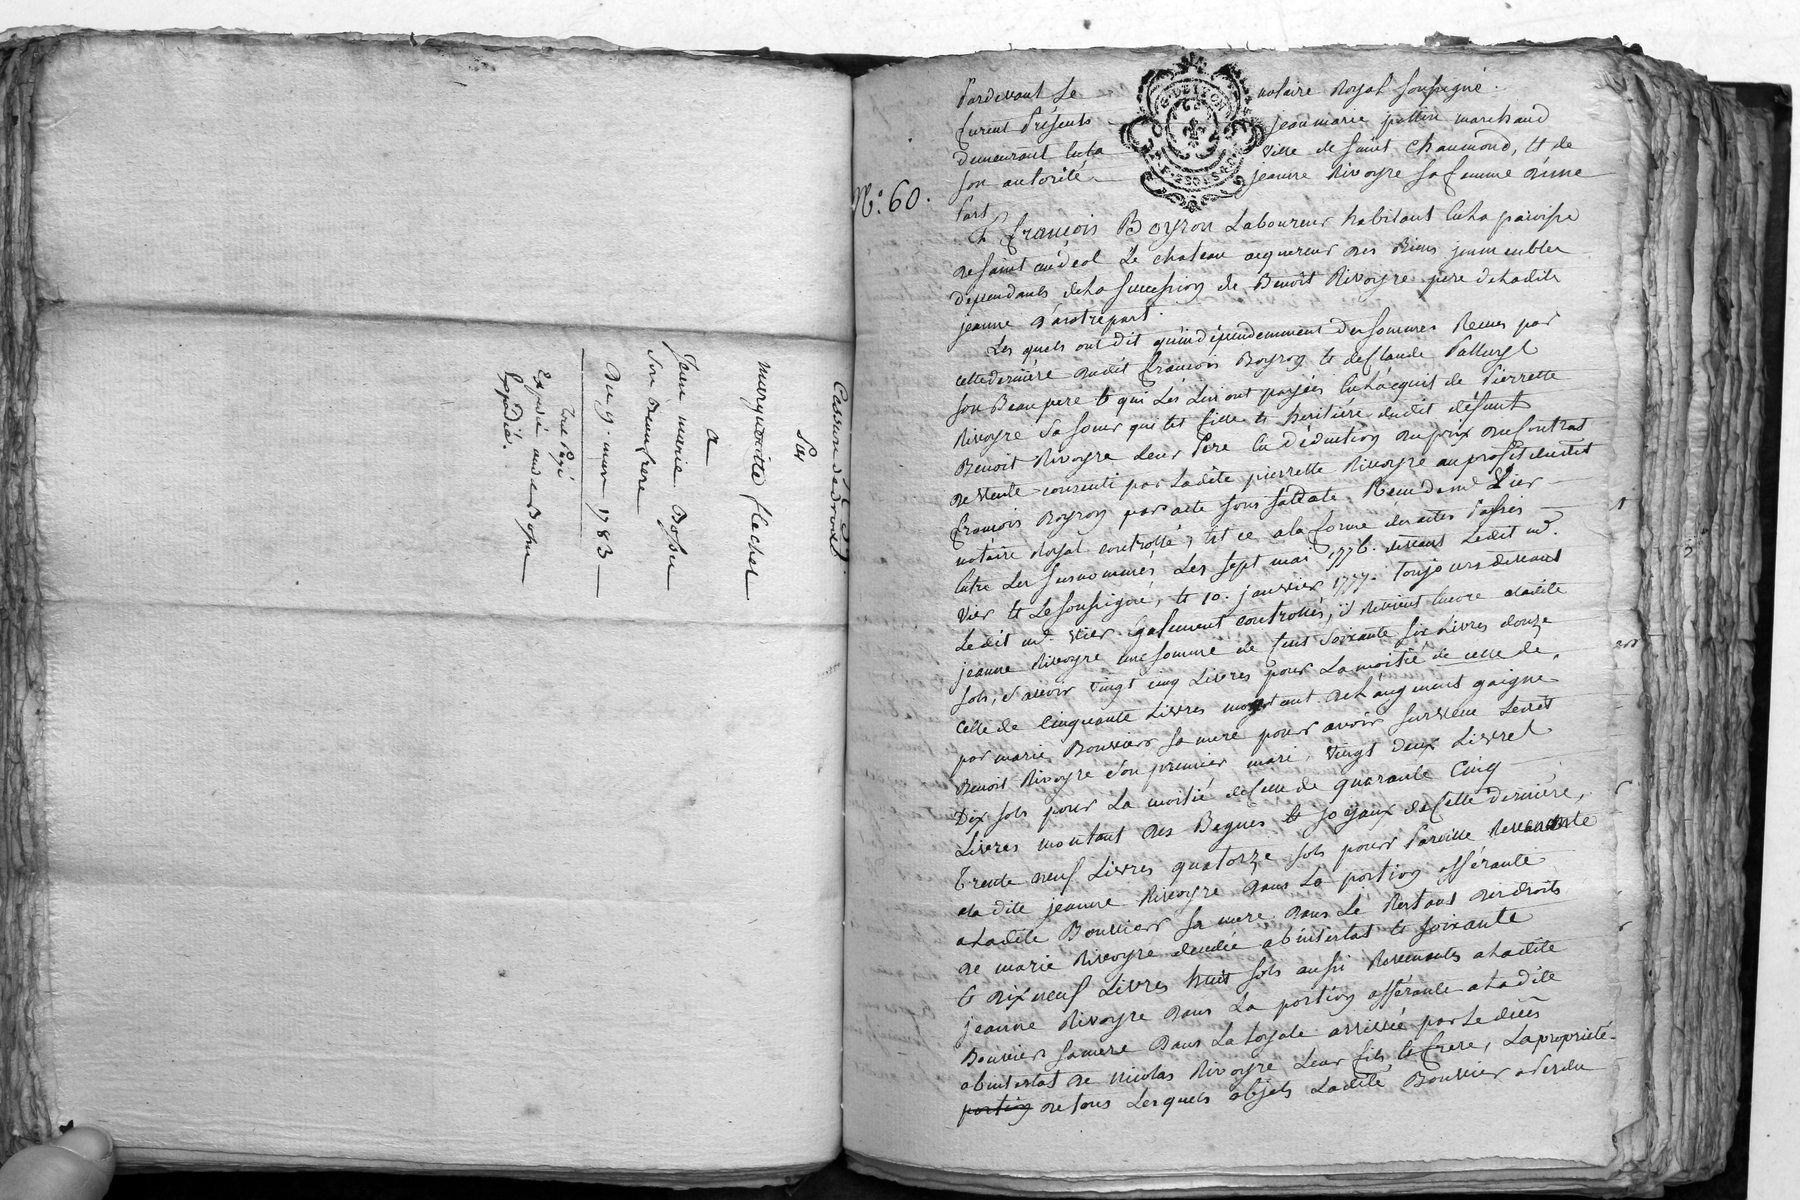 Cession de droits
Par
margueritte flachet
a
Jean marie Boyron
Son Beaufrere
Du 9. mars 1783
Expedié aud. Boyron
Expedié.
Pardevant Le notaire Royal soussigné
furent Présents Jean marie pottin marchand
demeurant en la ville de saint chaumond, et de
son autorité jeanne Rivoyre sa femme d'une
N.º 60.
part
Et françois Boyron Laboureur habitant en la paroisse
de saint andéol Le chateau acquereur des Biens immeubles
dépendants de la succession de Benoît Rivoyre pere de ladite
jeanne d'autre part.
Les quels ont dit qu'indépendemment des sommes Recues par
cette derniere dudit françois Boyron et de Claude
son Beau pere et qui Les Lui ont payées en L'acquit de Pierrette
Rivoyre sa soeur qui est fille et heritiére dudit défunt
Benoit Rivoyre Leur Pere en déduction du prix du Contrat
de vente consenti par Ladite pierrette Rivoyre au profit dudit
françois Boyron par acte sous sa date Reçu dud. me Vier
notaire Royal controllé, et ce a la forme des actes Passés
entre Les susnommés Les sept mai 1776. devant Ledit me.
Vier et Le soussigné, et 10. janvier 1777. toujours devant
Ledit me. Vier également controllés, il Revient encore a ladite
jeanne Rivoyre une somme de Cent soixante six Livres douze
sols, savoir vingt cinq Livres pour La moitié de celle de
celle de Cinquante Livres montant de L'augment gaigné
par marie Bouvier sa mere pour avoir survecu Ledit
Benoit Rivoyre son premier mari, vingt deux Livres
Dix sols pour La moitié de Celle de quarante Cinq
Livres montant des Bagues et joyaux de Cette derniére,
Trente neuf Livres quatorze sols pour Pareille Revenante
a la dite jeanne Rivoyre dans La portion afférante
a Ladite Bouvier sa mere dans Le Restant des droits
de marie Rivoyre décedée abintestat et soixante
et dix neuf Livres huit sols aussi Revenantes a Ladite
jeanne Rivoyre dans La portion afférante a Ladite
Bouvier sa mere dans La Loyale arrivée par Le décès
abintestat de Nicolas Rivoyre Leur fils et frere, La propriété
portion de tous Lesquels objets Ladite Bouvier a perdu